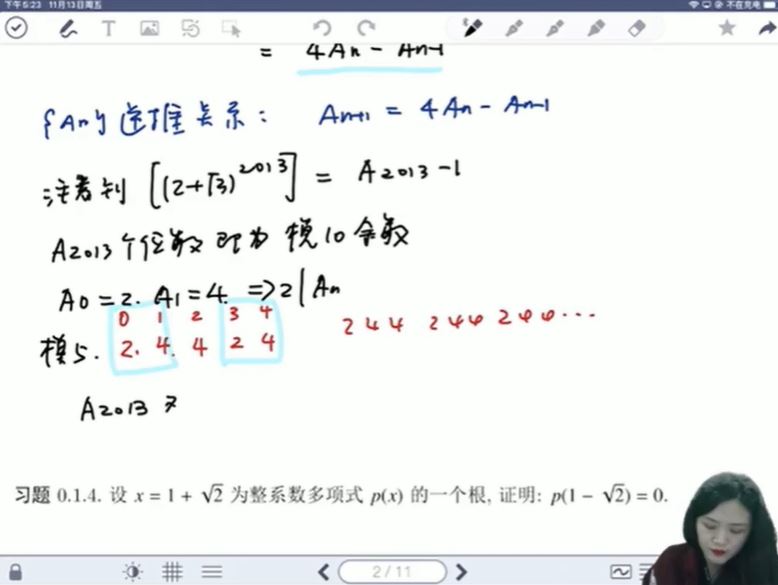 下午5:23 11月13日周五
不在充电
= 4An - An-1
{An} 递推关系： An+1 = 4An - An-1
注意到 [(2+√3)^2013] = A2013 -1
A2013 个位数 即为 模10余数
A0 = 2. A1 = 4. => 2 | An
0 1 2 3 4
2 4 4 2 4 4 2 4 4 ...
模5. 2. 4. 4 2 4
A2013
习题 0.1.4. 设 x = 1 + √2 为整系数多项式 p(x) 的一个根, 证明: p(1 − √2) = 0.
2 / 11